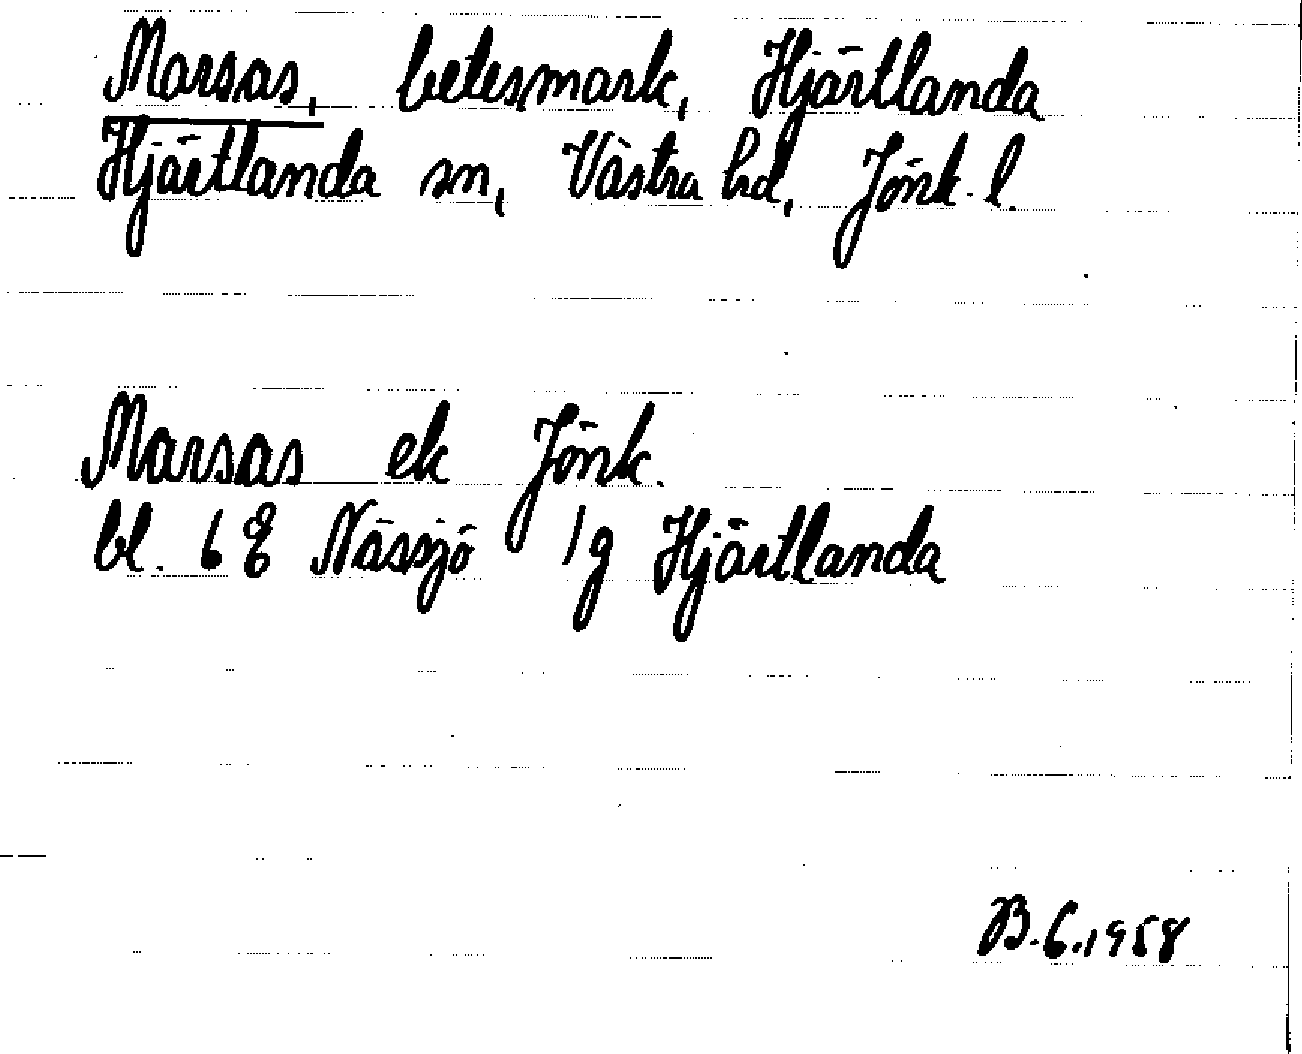 Marsas, betesmark, Hjärtlanda
Hjärtlanda sn, Västra hd, Jönk. l.
Marsas ek Jönk.
bl. 6 E Nässjö 1g Hjärtlanda
B.G.1958